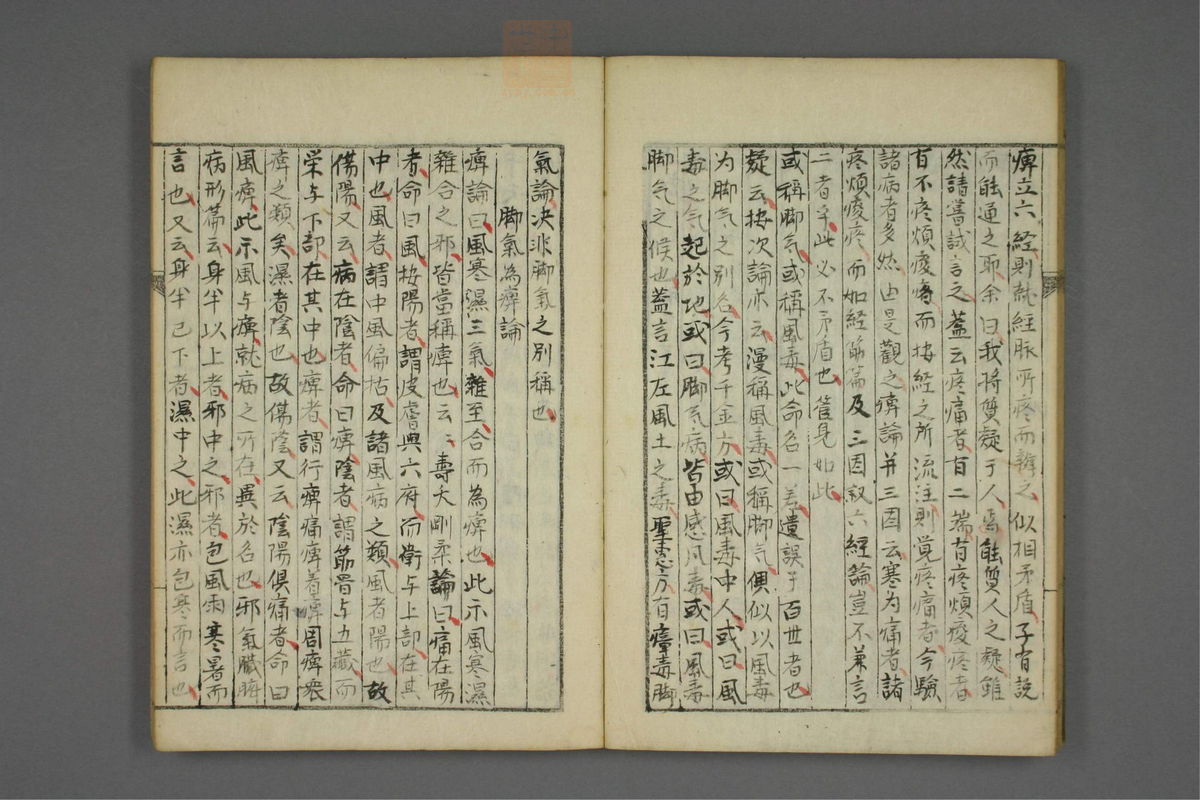 痺立六經則就經脉所疼而辨之似相矛盾子有説
而能通之耶余曰我將質疑于人焉能質人之疑雖
然請嘗試言之蓋云疼痛者有二端有疼煩痠疼者
有不疼煩痠疼而按經之所流注則覚疼痛者今驗
諸病者多然由是觀之痺論并三因云寒为痛者諸
疼煩痠疼而如經筋篇及三因叙六經論豈不兼言
二者乎此必不矛盾也管見如此
或稱脚气或稱風毒此命名一差遺誤于百世者也
疑云按次論亦云漫稱風毒或稱脚气俱似以風毒
为脚气之別名今考千金方或曰風毒中人或曰風
毒之气起於地或曰脚气病皆由感风毒或曰風毒
脚气之候也蓋言江左風土之毒聖惠方有瘴毒脚
氣論决非脚氣之別稱也
脚氣為痺論
痺論曰風寒濕三氣雜至合而為痺也此示風寒濕
雜合之邪皆當稱痺也云〻壽夭剛柔論曰痛在陽
者命曰風按陽者謂皮膚與六府而衛与上部在其
中也風者謂中風偏枯及諸風病之類風者陽也故
傷陽又云病在陰者命曰痺陰者謂筋骨与五藏而
栄与下部在其中也痺者謂行痺痛痺着痺周痺衆
痺之類矣濕者陰也故傷陰又云陰陽俱痛者命曰
風痺此示風与痺就病之所在異於名也邪氣臓腑
病形篇云身半以上者邪中之邪者包風雨寒暑而
言也又云身半已下者濕中之此濕亦包寒而言也